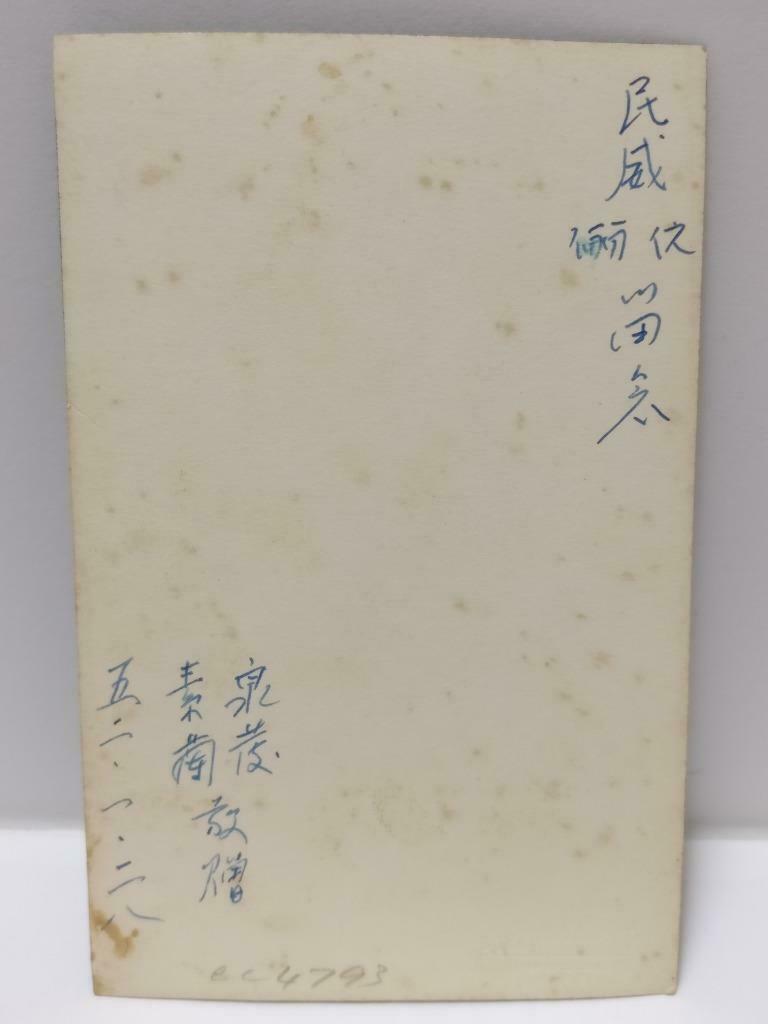 民威
伉儷
留念
泉茂
素蘭
敬贈
五二.一.二八
cc4793